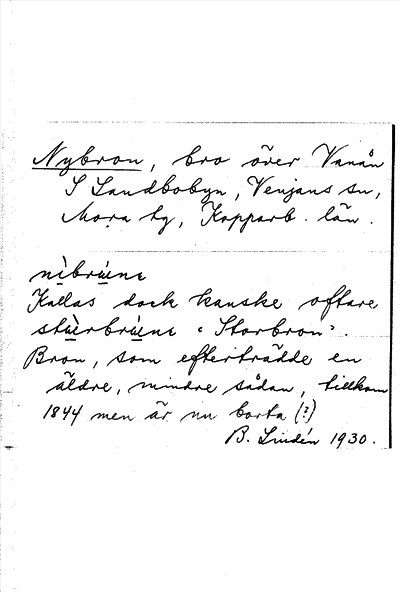 Nybron, bro över Vanån
S Landbobyn, Venjans sn,
Mora tg, Kopparb. län.
nìbrùnɛ
Kallas dock kanske oftare
stùrbrùnɛ "Storbron".
Bron, som efterträdde en
äldre, mindre sådan, tillkom
1844 men är nu borta (?)
B. Lindén 1930.